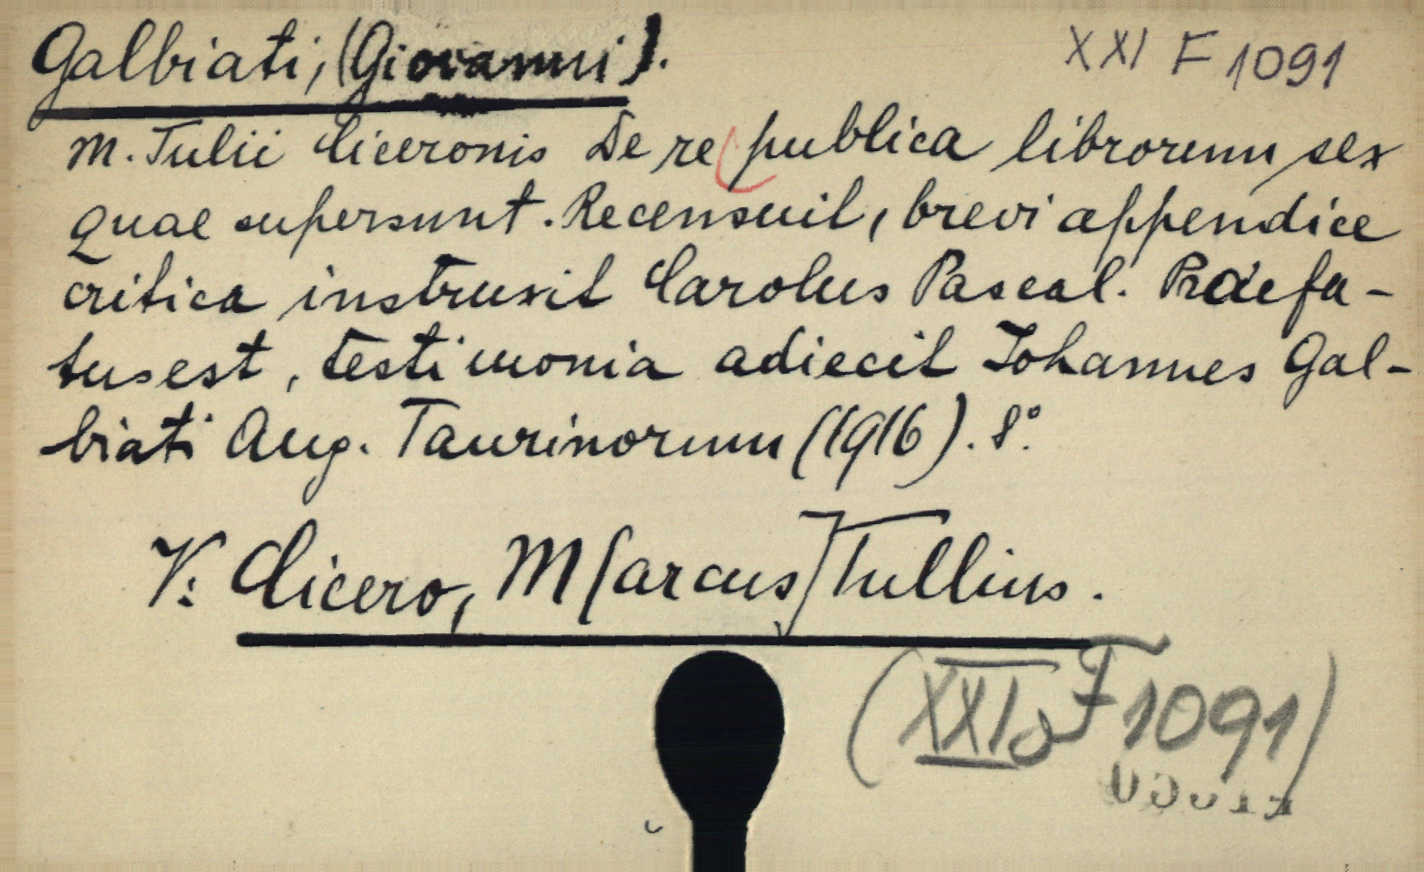 Galbiati, (Giovanni). XXI F 1091
M. Tulii Ciceronis De re publica librorum sex
quae supersunt. Recensuit, brevi appendice
critica instruxit Carolus Pascal. Praefa-
tus est, testimonia adiecit Iohannes Gal-
biati Aug. Taurinorum (1916). 8°.
V: Cicero, M[arcus] Tullius.
(XXI F 1091)